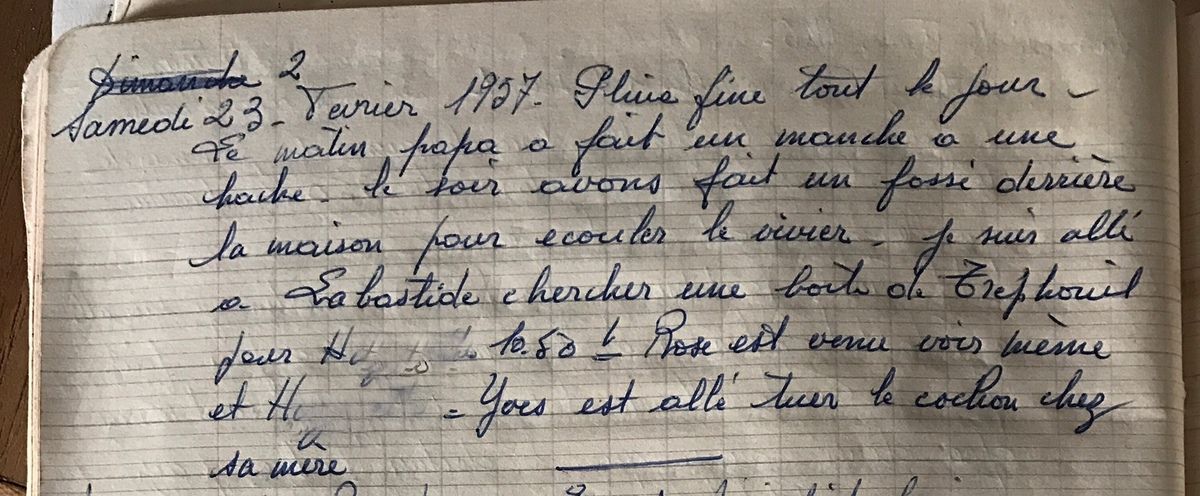 Dimanche 2
Samedi 23 - Fevrier 1957 - Pluie fine tout le jour -
Le matin papa a fait un manche a une
hache - le soir avons fait un fossé derrière
la maison pour ecouler le vivier - je suis allé
a Labastide chercher une boite de
pour 10.50 f - Rose est venu voir mème
et - Yves est allé tuer le cochon chez
sa mère